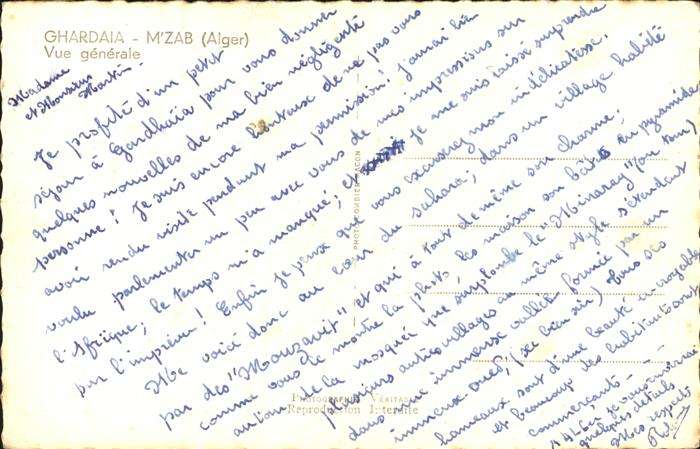 GHARDAIA - M'ZAB (Alger)
Vue générale
Madame
et Monsieur
Martin
Je profite d'un petit
séjour à Gardhaïa pour vous donner
quelques nouvelles de ma bien négligente
personne! Je suis encore honteuse de ne pas vous
avoir rendu visite pendant ma permission! J'aurai bien
voulu parlementer un peu avec vous de mes impressions sur
l'Afrique; le temps m'a manqué; et Je me suis laissé surprendre
par l'imprévu! Enfin je peux que vous excuserez mon indélicatesse.
Me voici donc au cœur du sahara; dans un village habité
par des "Mouzavit" et qui a tout de même son charme;
comme vous le montre la photo les maison son bâti en pyramide
autour de la mosquée que surplombe le "Minaray" (ou tour)
plusieurs autres villages au même style s'étendant
dans une immense vallée formée par un
immense oued, (sec bien sûr) tous ses
hameaux sont d'une beauté incroyable
et beaucoup des habitants sont
commerçants
A + tôt, je vous donnerai
quelques détails
Mes respects
PHOTOGRAPHIE VÉRITABLE
Reproduction Interdite